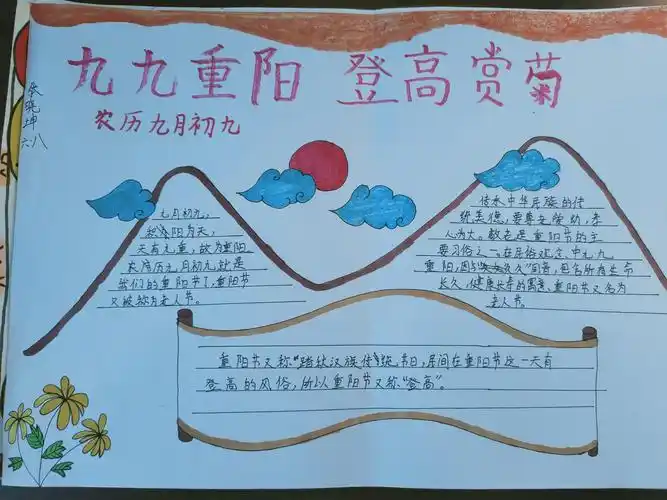 九九重阳 登高赏菊
农历九月初九
张晓坤
六八
九月初九,
阳为天,
天有九重,故为重阳
农历九月初九就是
我们的重阳节了,重阳节
又被称为老人节。
传承中华民族的传
统美德,要尊安爱幼,亲
人为大。敬老是重阳节的主
要习俗之一。在民俗观念中九九
重阳,因与"久久"同音,包含有生命
长久,健康长寿的寓意、重阳节又名为
老人节。
重阳节又称"踏秋汉族传统节日,居间在重阳节这一天有
登高的风俗,所以重阳节又称"登高"。